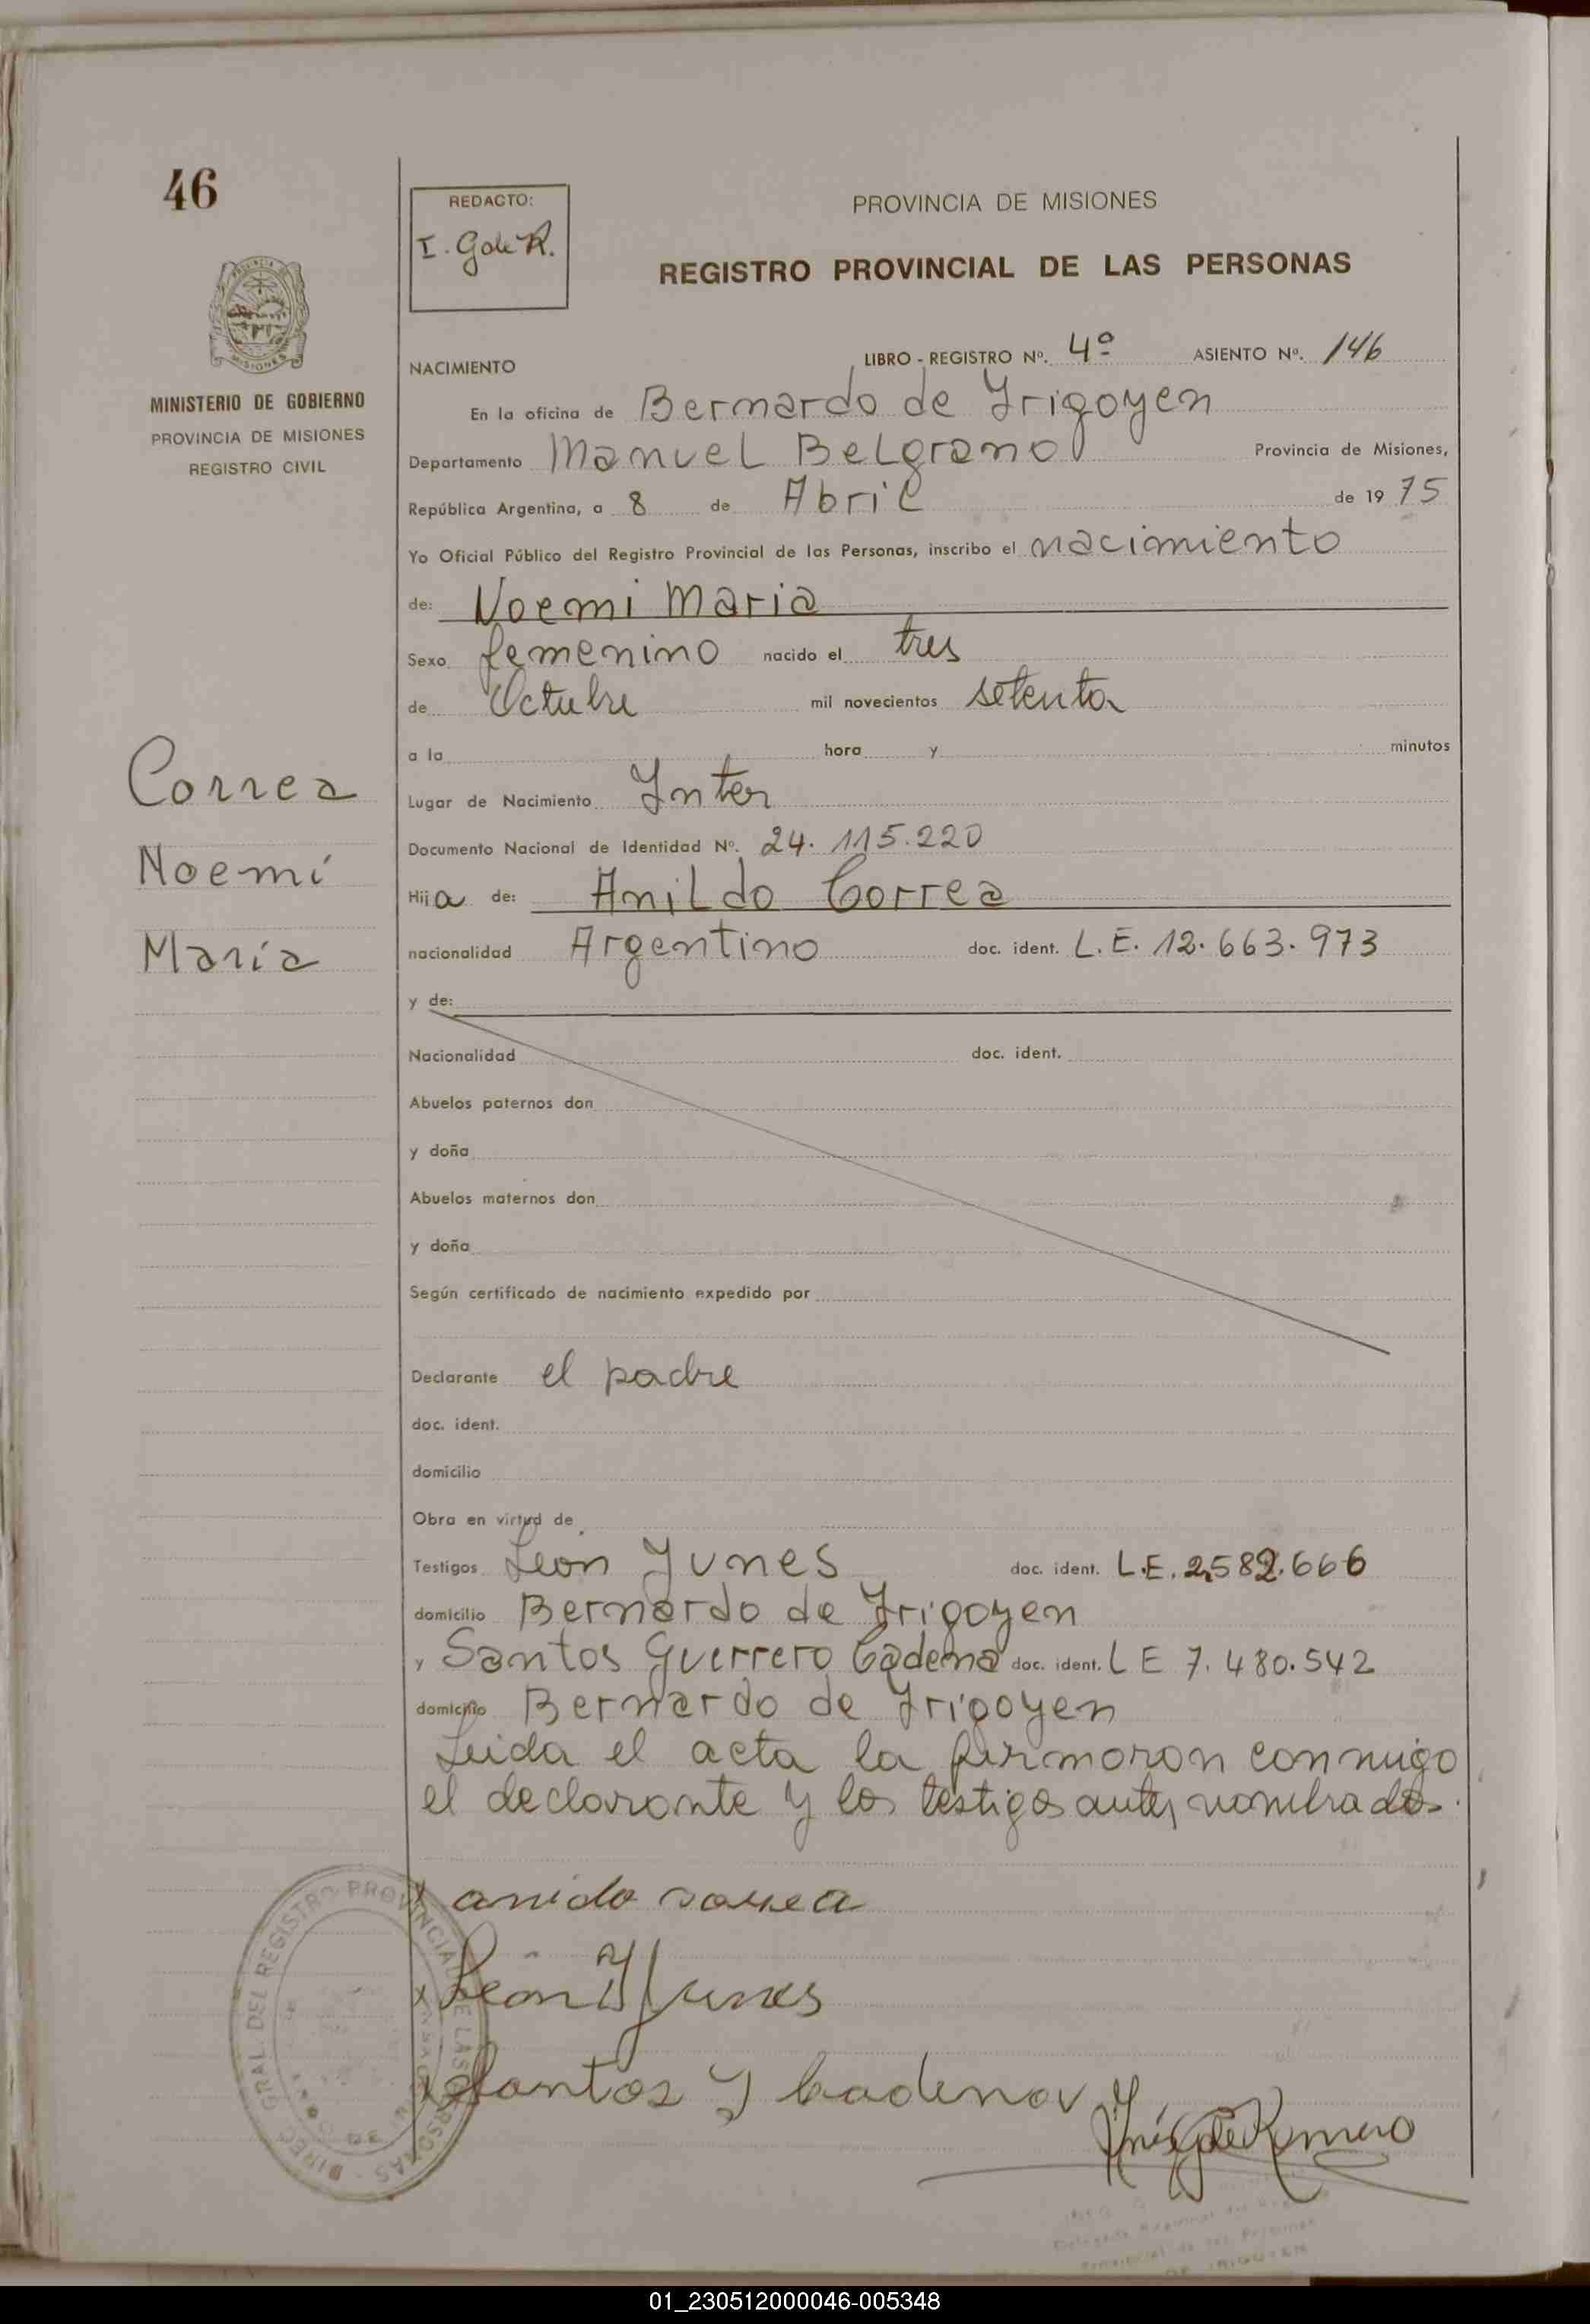 46
REDACTO:
I. G de R.
PROVINCIA DE MISIONES
REGISTRO PROVINCIAL DE LAS PERSONAS
MINISTERIO DE GOBIERNO
PROVINCIA DE MISIONES
REGISTRO CIVIL
NACIMIENTO LIBRO - REGISTRO Nº. 4º ASIENTO Nº. 146
En la oficina de Bernardo de Yrigoyen
Departamento Manuel Belgrano Provincia de Misiones,
República Argentina, a 8 de Abril de 1975
Yo Oficial Público del Registro Provincial de las Personas, inscribo el nacimiento
de: Noemi Maria
Sexo femenino nacido el tres
de Octubre mil novecientos setenta
a la hora y minutos
Correa
Noemí
María
Lugar de Nacimiento Inter
Documento Nacional de Identidad Nº. 24.115.220
Hija de: Anildo Correa
nacionalidad Argentino doc. ident. L.E. 12.663.973
y de:
Nacionalidad doc. ident.
Abuelos paternos don
y doña
Abuelos maternos don
y doña
Según certificado de nacimiento expedido por
Declarante el padre
doc. ident.
domicilio
Obra en virtud de
Testigos León Yunes doc. ident. L.E. 2,582.666
domicilio Bernardo de Yrigoyen
y Santos Guerrero Cadena doc. ident. L E 7.480.542
domicilio Bernardo de Yrigoyen
Leida el acta la firmaron conmigo
el declarante y los testigos antes nombrados.
León Yunes
Santos G Cadena
Inés G de Romero
DIREC. GRAL. DEL REGISTRO PROVINCIAL DE LAS PERSONAS
01_230512000046-005348